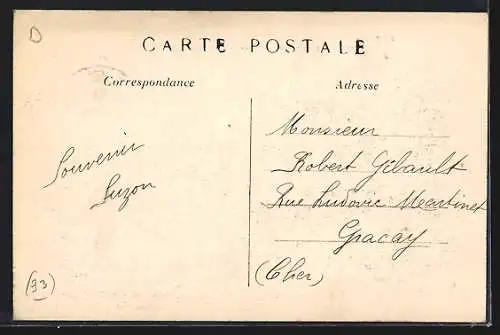 D
CARTE POSTALE
Correspondance
Adresse
Souvenir
Suzon
Monsieur
Robert Gibault
Rue Ludovic Martinet
Graçay
(Cher)
(93)